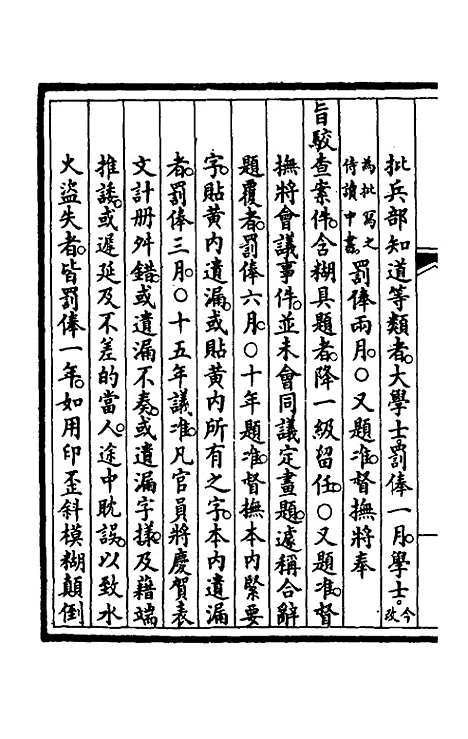 批兵部知道等類者。大學士。罰俸一月。學士。今改
為批寫之侍讀中書。罰俸兩月。○又題准。督撫將奉
旨駮查案件。含糊具題者。降一級留任。○又題准。督
撫將會議事件。並未會同議定畫題。遽稱合辭
題覆者。罰俸六月。○十年題准。督撫本內緊要
字。貼黃內遺漏。或貼黃內所有之字。本內遺漏
者。罰俸三月。○十五年議准。凡官員將慶賀表
文計冊舛錯。或遺漏不奏。或遺漏字㨾。及藉端
推諉。或遲延及不差的當人。途中耽誤。以致水
火盜失者。皆罰俸一年。如用印歪斜模糊顛倒